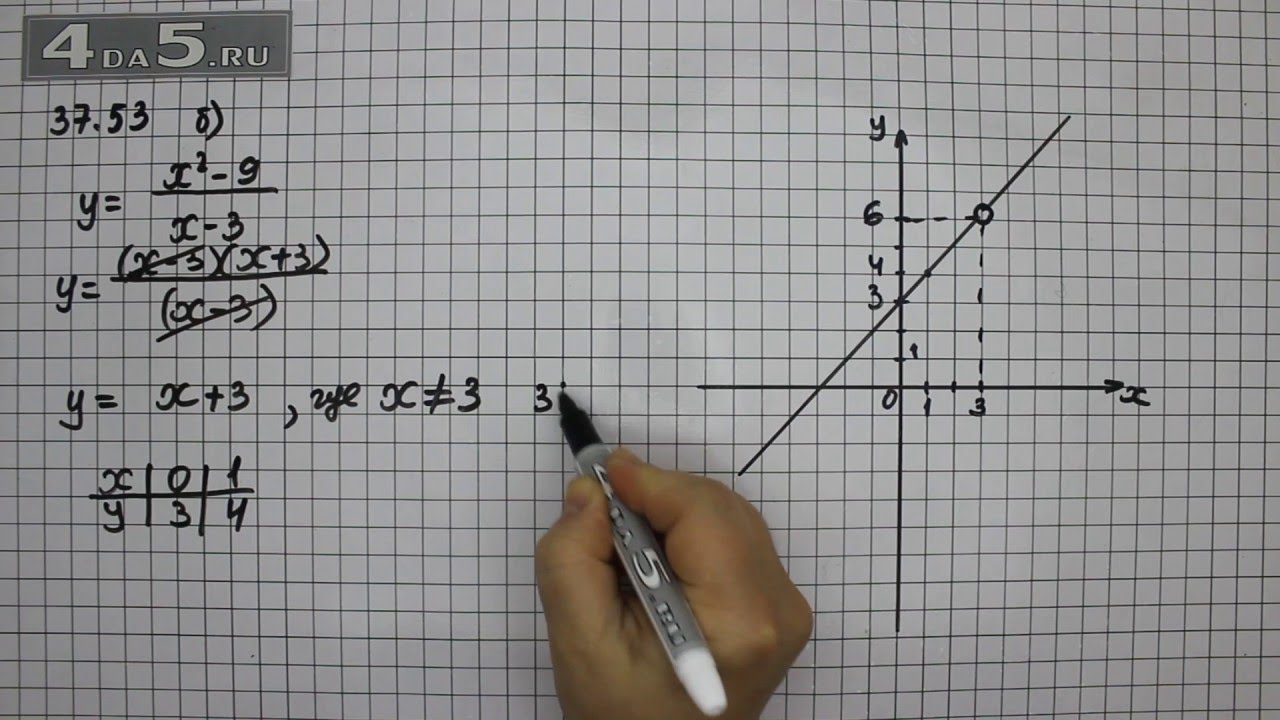 4DA5.RU
37.53 б)
y = x² - 9
x - 3
y = (x-3)(x+3)
(x-3)
y = x+3 , где x ≠ 3 3
x | 0 | 1
y | 3 | 4
y
6
4
3
1
0 1 3 x
4DA5.RU